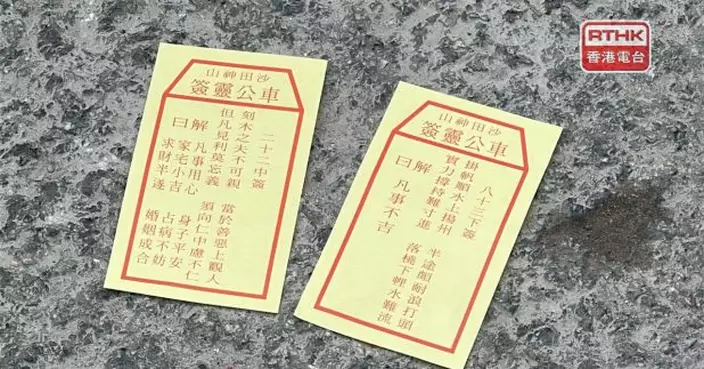 RTHK
香港電台
沙田神山
車公靈簽
二十二中簽
刻木之夫不可親 當於善惡上觀人
但凡見利莫忘義 須向仁中慮不仁
解曰
凡事用心 身子平安
家宅小吉 占病不妨
求財半遂 婚姻成合
沙田神山
車公靈簽
八十三下簽
掛帆順水上揚州 半途頗耐浪打頭
實力撐持難寸進 落橈下 水難流
解曰
凡事不吉